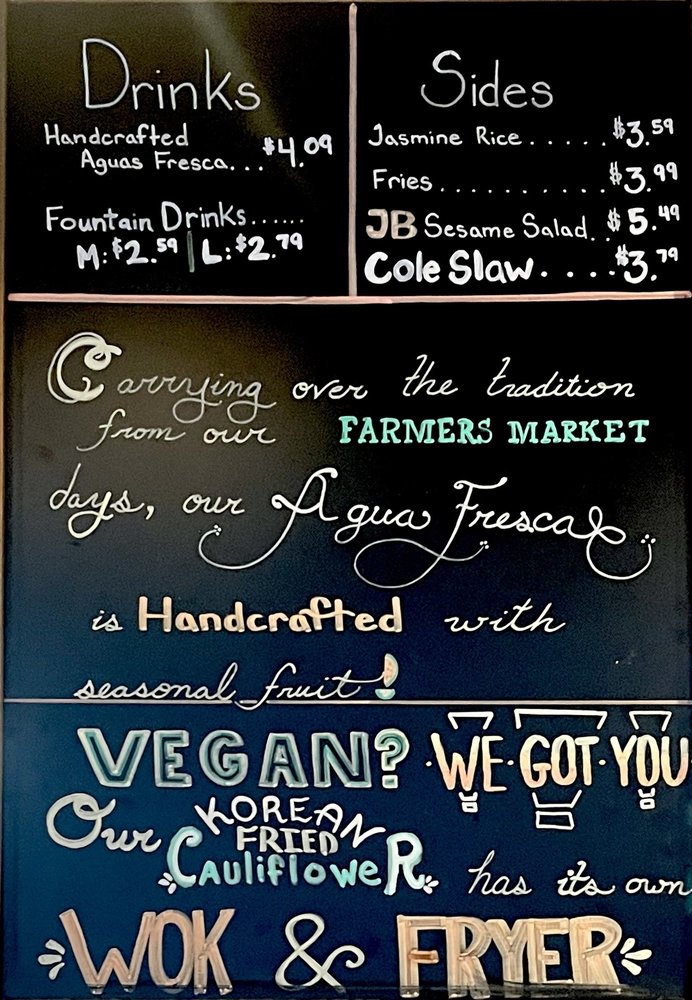 Drinks
Handcrafted
Aguas Fresca... $4.09
Fountain Drinks......
M: $2.59 | L: $2.79
Sides
Jasmine Rice...... $3.59
Fries.......... $3.99
JB Sesame Salad.. $5.49
Cole Slaw..... $3.79
Carrying over the tradition
from our FARMERS MARKET
days, our Agua Fresca
is Handcrafted with
seasonal fruit!
VEGAN? ·WE·GOT·YOU
Our KOREAN
FRIED
CaulifloweR has its own
WOK & FRYER